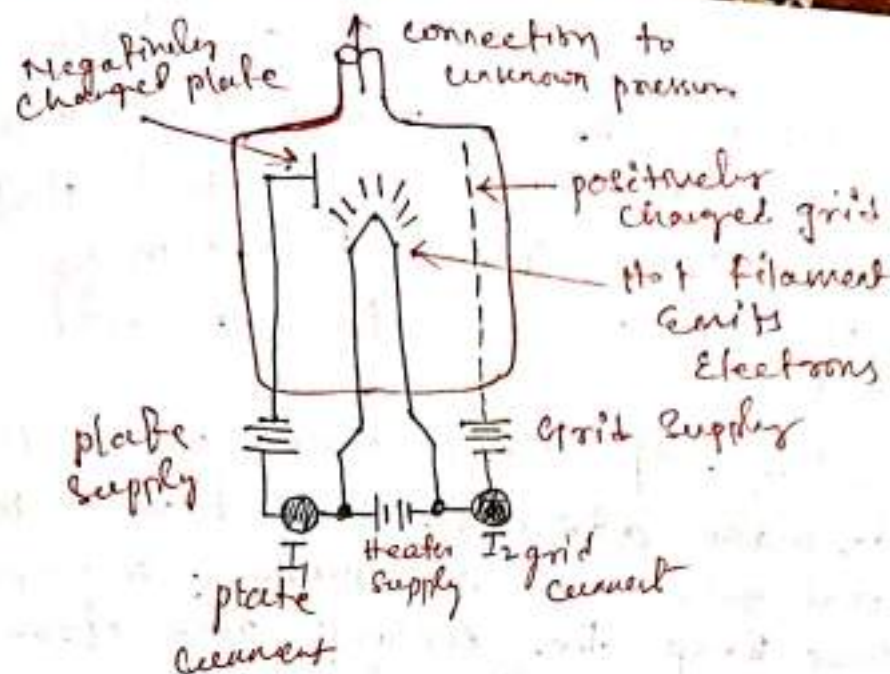 Negatively
Charged plate
connection to
unknown pressure
positively
charged grid
Hot filament
Emits
Electrons
plate
Supply
Grid Supply
I1
plate
current
Heater
Supply
I2 grid
current